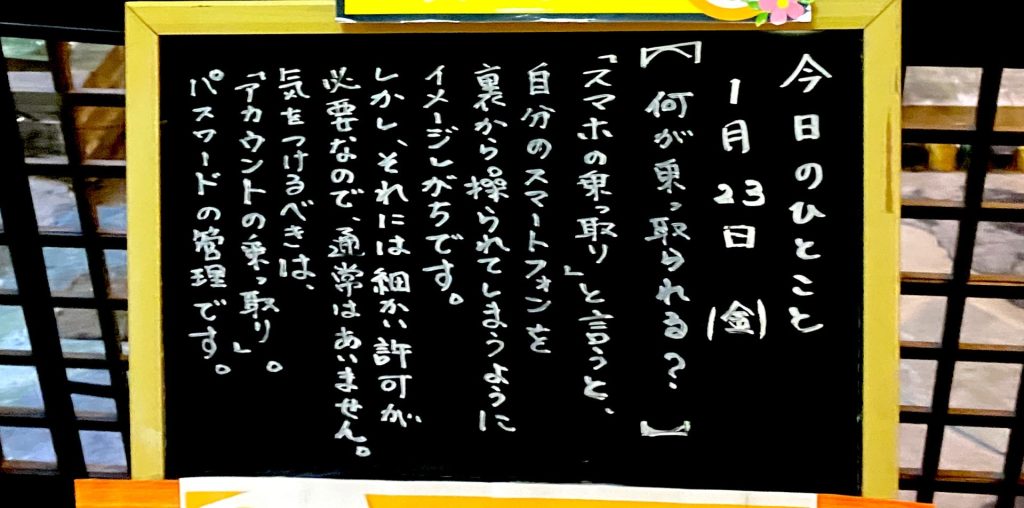 今日のひとこと
1月23日(金)
【何が乗っ取られる?】
「スマホの乗っ取り」と言うと、
自分のスマートフォンを
裏から操られてしまうように
イメージしがちです。
しかし、それには細かい許可が
必要なので、通常はあいません。
気をつけるべきは、
「アカウントの乗っ取り」。
パスワードの管理です。